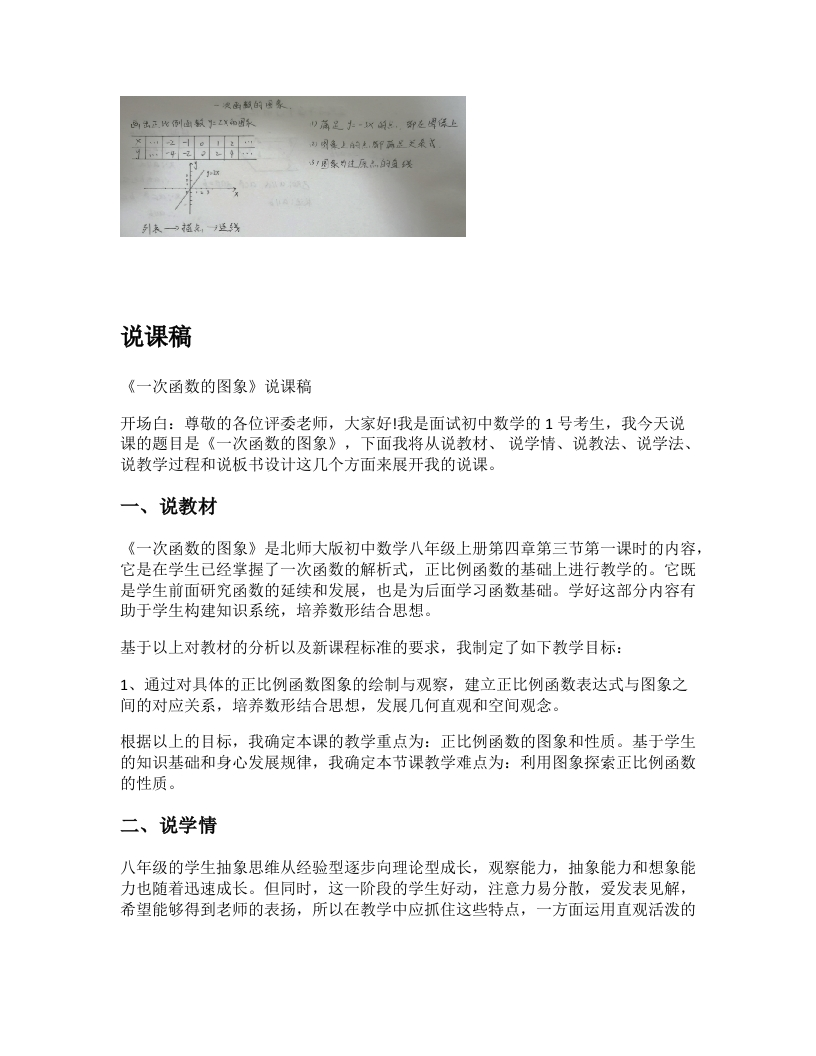 一次函数的图象
画出正比例函数 y=2x的图象
x ... -2 -1 0 1 2 ...
y ... -4 -2 0 2 4 ...
y
y=2x
1 2 3
x
列表→描点→连线
1) 满足 y=-3x 的点,都在图像上
2) 图象上的点都满足关系式
3) 图象为过原点的直线
说课稿
《一次函数的图象》说课稿
开场白：尊敬的各位评委老师，大家好!我是面试初中数学的 1 号考生，我今天说
课的题目是《一次函数的图象》，下面我将从说教材、 说学情、说教法、说学法、
说教学过程和说板书设计这几个方面来展开我的说课。
一、说教材
《一次函数的图象》是北师大版初中数学八年级上册第四章第三节第一课时的内容，
它是在学生已经掌握了一次函数的解析式，正比例函数的基础上进行教学的。它既
是学生前面研究函数的延续和发展，也是为后面学习函数基础。学好这部分内容有
助于学生构建知识系统，培养数形结合思想。
基于以上对教材的分析以及新课程标准的要求，我制定了如下教学目标：
1、通过对具体的正比例函数图象的绘制与观察，建立正比例函数表达式与图象之
间的对应关系，培养数形结合思想，发展几何直观和空间观念。
根据以上的目标，我确定本课的教学重点为：正比例函数的图象和性质。基于学生
的知识基础和身心发展规律，我确定本节课教学难点为：利用图象探索正比例函数
的性质。
二、说学情
八年级的学生抽象思维从经验型逐步向理论型成长，观察能力，抽象能力和想象能
力也随着迅速成长。但同时，这一阶段的学生好动，注意力易分散，爱发表见解，
希望能够得到老师的表扬，所以在教学中应抓住这些特点，一方面运用直观活泼的